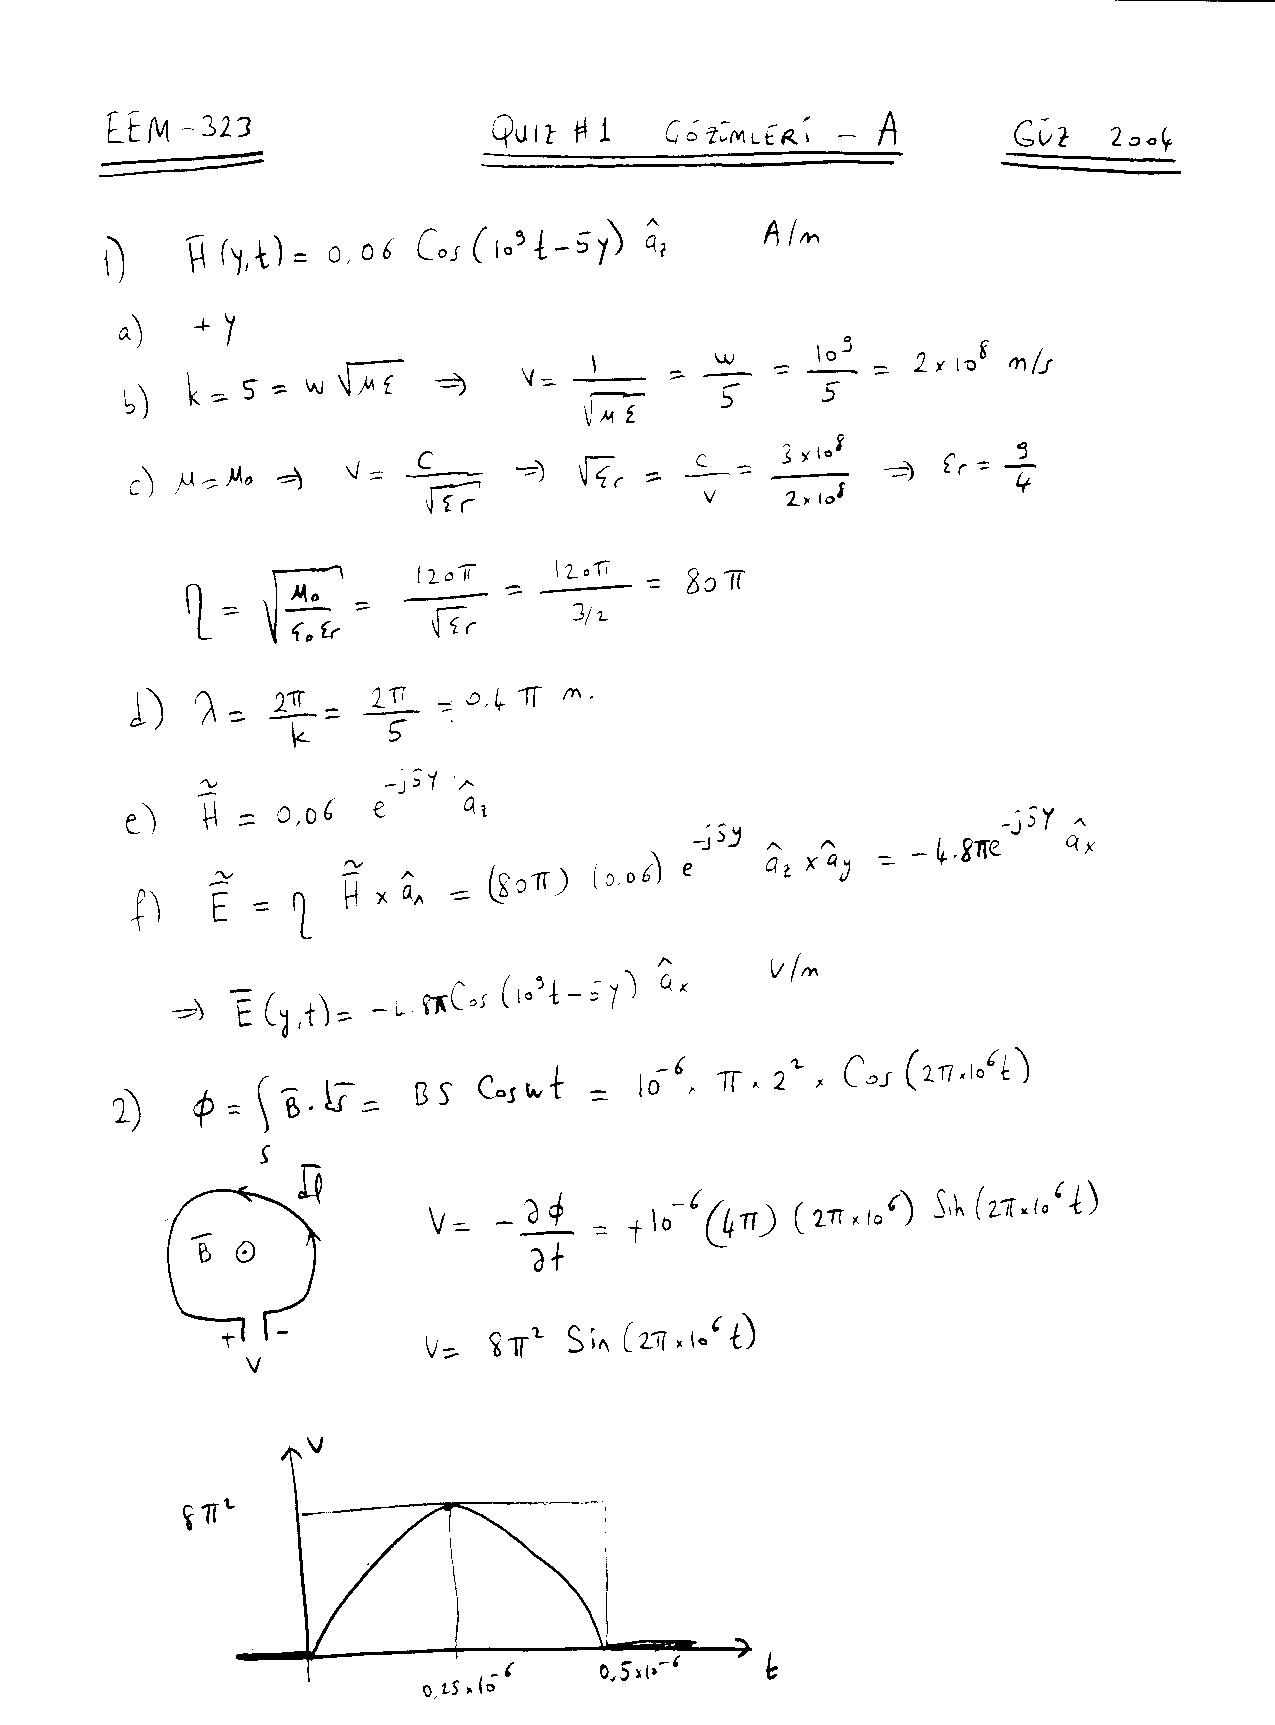 EEM-323 QUIZ #1 ÇÖZÜMLERİ - A GÜZ 2004
1) H̅(y,t) = 0.06 Cos(10⁹t-5y) â_z A/m
a) +y
b) k = 5 = w√(με) ⇒ v = 1/√(με) = w/5 = 10⁹/5 = 2×10⁸ m/s
c) μ=μ₀ ⇒ v = c/√εr ⇒ √εr = c/v = 3×10⁸/2×10⁸ ⇒ εr = 9/4
η = √(μ₀/ε₀εr) = 120π/√εr = 120π/3/2 = 80π
d) λ = 2π/k = 2π/5 = 0.4π m.
e) H̃ = 0.06 e^(-j5y) â_z
f) Ẽ = η H̃ × â_n = (80π) (0.06) e^(-j5y) â_z × â_y = -4.8π e^(-j5y) â_x
⇒ E̅(y,t) = -4.8π Cos(10⁹t-5y) â_x V/m
2) φ = ∫_S B̅·ds̅ = BS Cos wt = 10⁻⁶ . π × 2² × Cos(2π×10⁶t)
dl̅
V = -∂φ/∂t = +10⁻⁶ (4π) (2π×10⁶) Sin(2π×10⁶t)
B̅ ⊙
+ -
V
V = 8π² Sin(2π×10⁶t)
V
8π²
0,25×10⁻⁶ 0,5×10⁻⁶ t